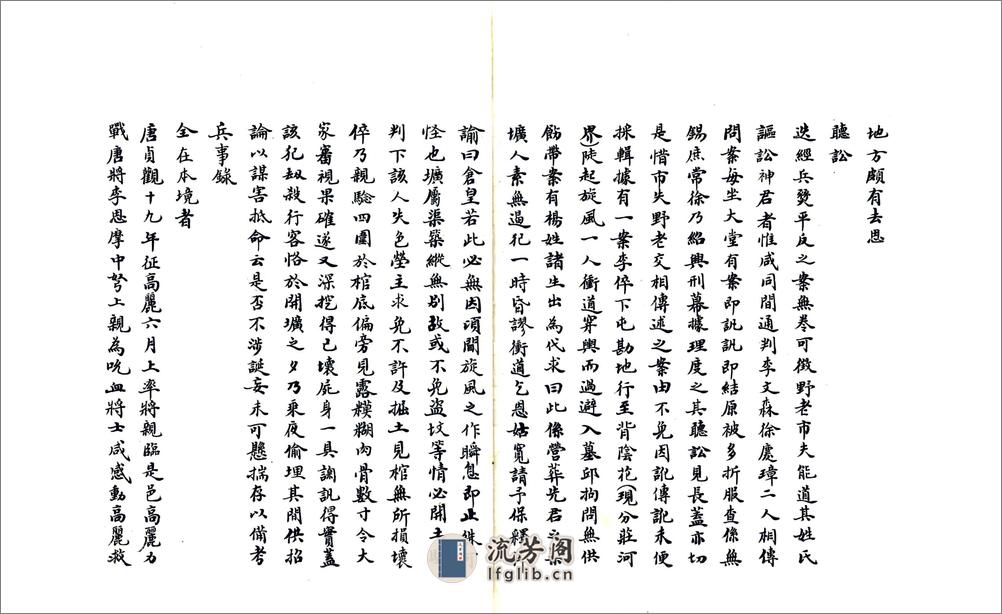 地方頗有去思
聽訟
迭經兵燹平反之案無卷可徵野老市夫能道其姓氏
謳訟神君者惟咸同間通判李文森徐慶璋二人相傳
問案每坐大堂有案即訊訊即結原被多折服查係無
錫庶常徐乃紹興刑幕據理度之其聽訟見長蓋亦切
是惜市失野老交相傳述之案由不免因訛傳訛未便
採輯據有一案李倅下屯勘地行至背陰挖(現分莊河
界)陡起旋風一人衝道穿輿而過避入墓邱拘問無供
飭帶案有楊姓諸生出為代求曰此係營葬先君之
壙人素無過犯一時昏謬衝道乞恩姑寬請予保釋
諭曰倉皇若此必無因項間旋風之作瞬息即止
怪也壙屬渠築縱無別故或不免盜坟等情必開土
判下該人失色塋主求免不許及掘土見棺無所損壞
倅乃親驗四圍於棺底偏旁見露糢糊肉骨數寸令大
家審視果確遂又深挖得已壞屍身一具詢訊得實蓋
該犯劫殺行客恪於開壙之夕乃乘夜偷埋其間供招
論以謀害抵命云是否不涉誕妄未可懸揣存以備考
兵事錄
全在本境者
唐貞觀十九年征高麗六月上率將親臨是邑高麗力
戰唐將李思摩中弩上親為吮血將士咸感動高麗救
流芳阁
lfglib.cn